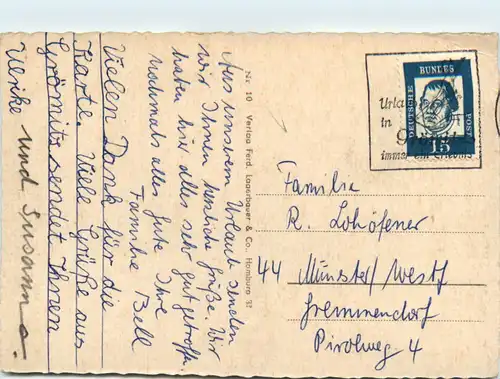 Aus unserem Urlaub senden
wir Ihnen herzliche Grüße. Wir
haben hier alles sehr gut getroffen
Nochmals alles gute Ihre
Familie Bell
Vielen Dank für die
Karte. Viele Grüße aus
Grömitz sendet Ihnen
Ulrike und Susanne.
Nr. 10 Verlag Ferd. Lagerbauer & Co., Hamburg
Urla
in
immer ein Erlebnis
DEUTSCHE
BUNDES
POST
15
Familie
R. Lohöfener
44 Münster/Westf
Gremmendorf
Pirolweg 4